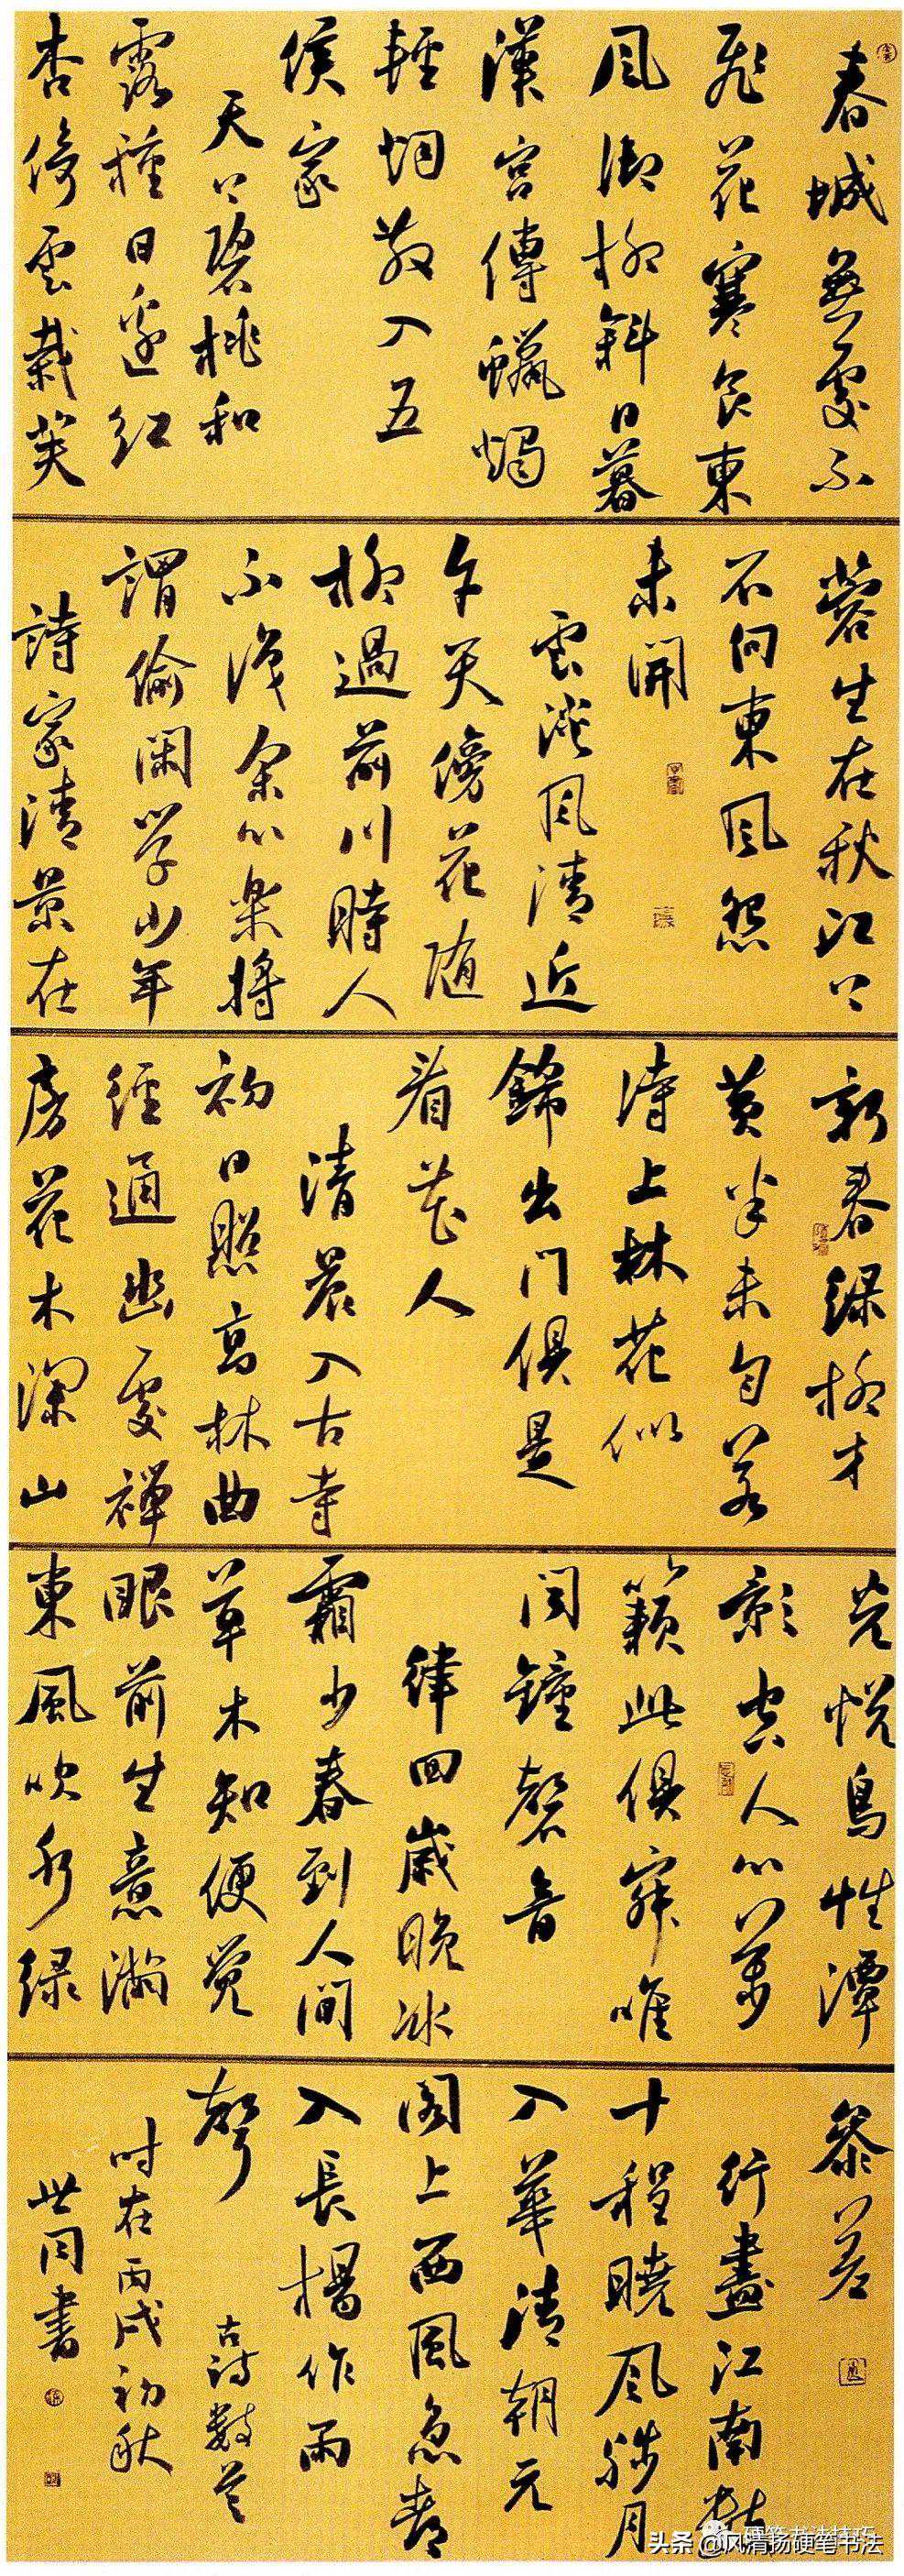 春城無處不
飛花寒食東
風御柳斜日暮
漢宮傳蠟燭
輕烟散入五
侯家
天上碧桃和
露種日邊紅
杏倚雲栽芙
蓉生在秋江上
不向東風怨
未開
雲淡風清近
午天傍花隨
柳過前川時人
不識余心樂將
謂偷閑學少年
詩家清景在
新春綠柳才
黄半未勻若
待上林花似
錦出門俱是
看花人
清晨入古寺
初日照高林曲
徑通幽處禪
房花木深山
光悦鳥性潭
影空人心萬
籟此俱寂唯
聞鐘磬音
律回歲晚冰
霜少春到人間
草木知便覺
眼前生意滿
東風吹水綠
參差
行盡江南數
十程曉風殘月
入華清朝元
閣上西風急都
入長楊作雨
聲
古詩數首
时在丙戌初秋
世同書
硬笔书法技巧
头条 @风清扬硬笔书法